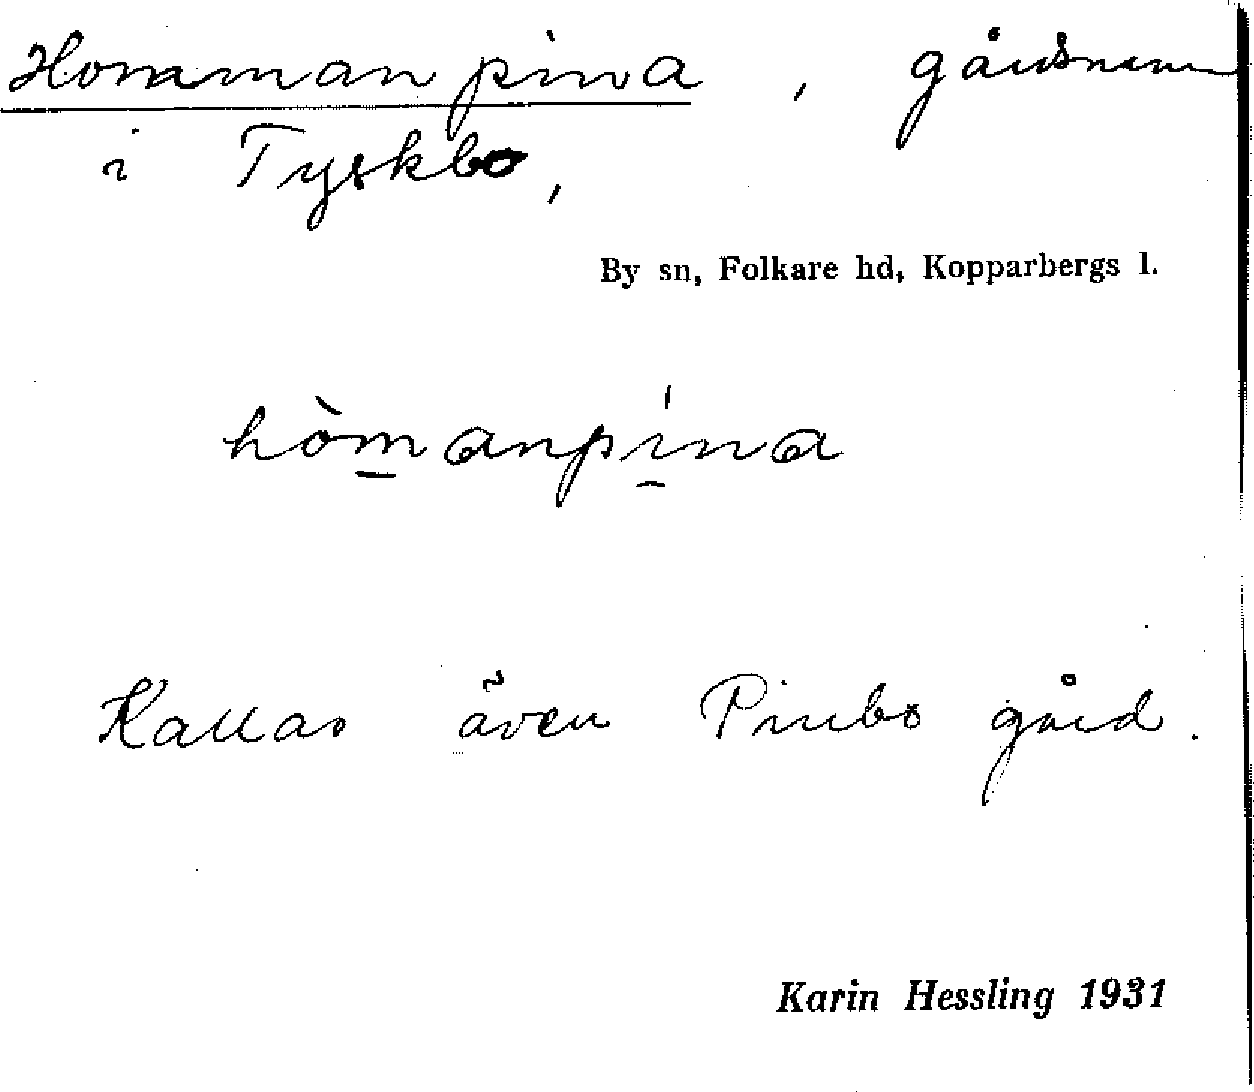 Hommanpina, gårdsnamn
i Tyskbo,
By sn, Folkare hd, Kopparbergs l.
hòm̲anpí̲na
Kallas även Pinbo gård.
Karin Hessling 1931